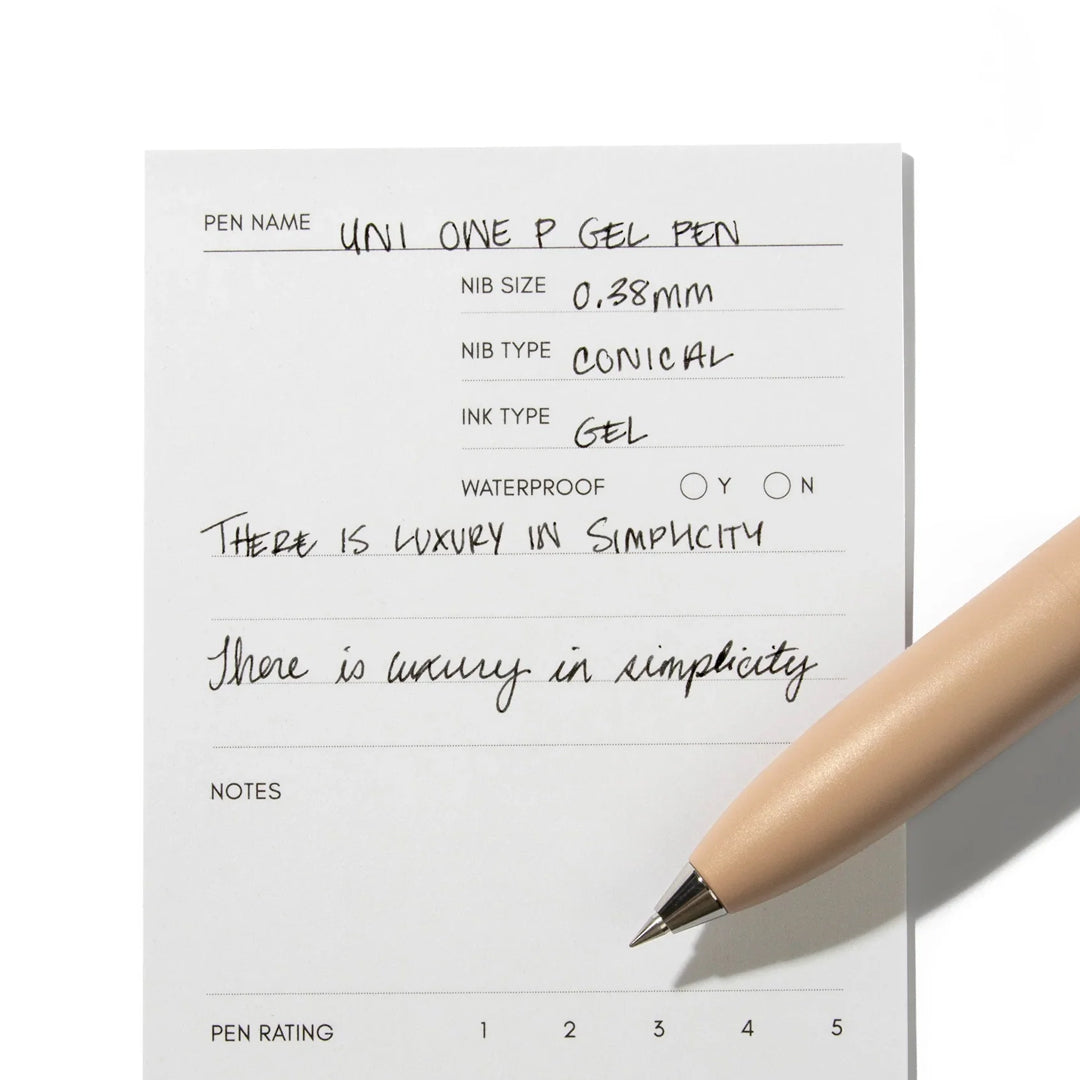 PEN NAME UNI ONE P GEL PEN
NIB SIZE 0.38mm
NIB TYPE CONICAL
INK TYPE GEL
WATERPROOF Y N
THERE IS LUXURY IN SIMPLICITY
There is luxury in simplicity
NOTES
PEN RATING 1 2 3 4 5